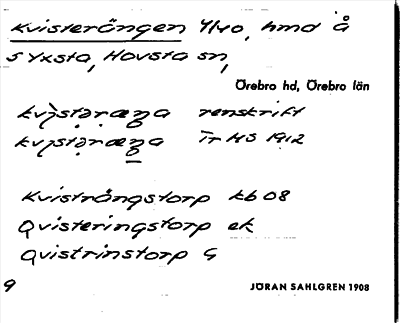 Kvisterängen 4/40, hmd å
S Yxsta, Hovsta sn,
Örebro hd, Örebro län
renskrift
Tr HS 1912
Kvisträngstorp kb 08
Qvisteringstorp ek
Qvistrinstorp G
9
JÖRAN SAHLGREN 1908